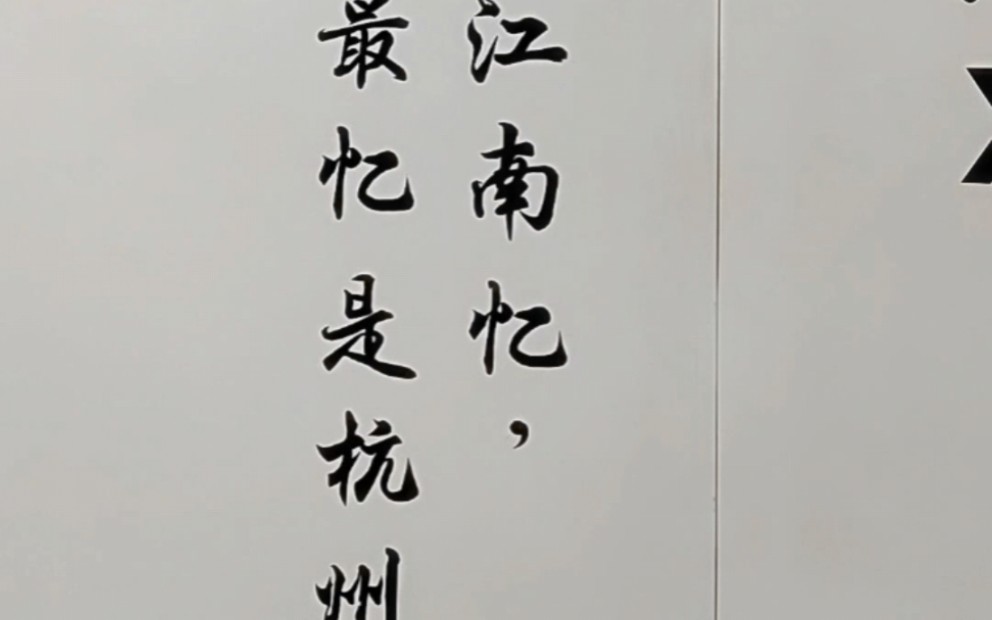 江南忆，
最忆是杭州